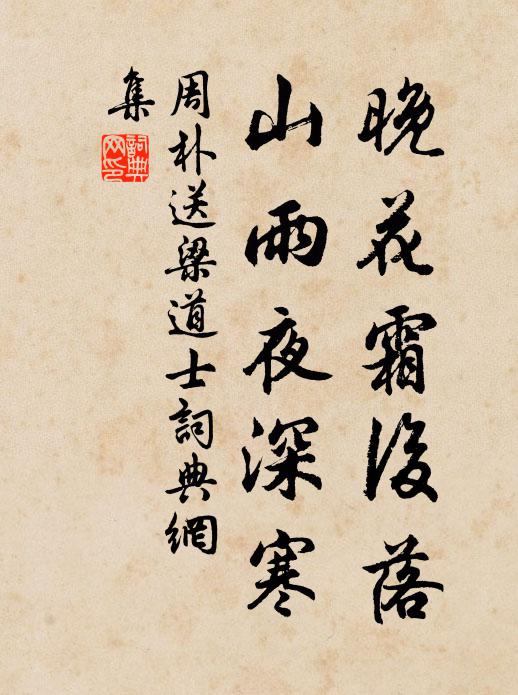 晚花霜後落
山雨夜深寒
周朴送梁道士詞典網
集
詞典網印